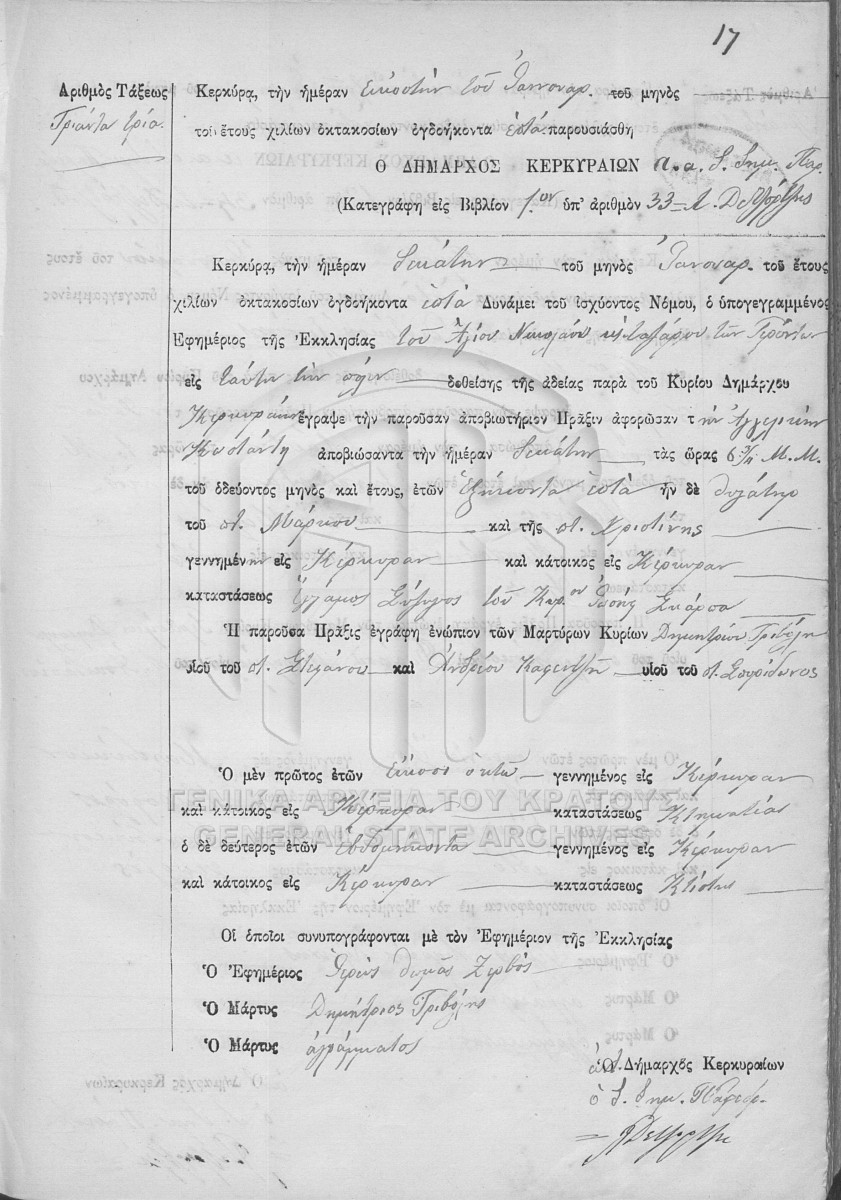 17
Ἀριθμὸς Τάξεως
Τριάντα τρία
Κερκύρᾳ, τὴν ἡμέραν εἰκοστὴν τοῦ Ἰαννουαρ. τοῦ μηνὸς
τοῦ ἔτους χιλίων ὀκτακοσίων ὀγδοήκοντα ἑπτὰ παρουσιάσθη
Ὁ ΔΗΜΑΡΧΟΣ ΚΕΡΚΥΡΑΙΩΝ α.α. Δημ. Παρ.
(Κατεγράφη εἰς Βιβλίον 1ον ὑπ' ἀριθμὸν 33
Κερκύρᾳ, τὴν ἡμέραν δεκάτην τοῦ μηνὸς Ἰαννουαρ. τοῦ ἔτους
χιλίων ὀκτακοσίων ὀγδοήκοντα ἑπτὰ Δυνάμει τοῦ ἰσχύοντος Νόμου, ὁ ὑπογεγραμμένος
Ἐφημέριος τῆς Ἐκκλησίας τοῦ Ἁγίου Νικολάου τῶν Γερόντων
εἰς ταύτην τὴν πόλιν δοθείσης τῆς ἀδείας παρὰ τοῦ Κυρίου Δημάρχου
Κερκυραίων ἔγραψε τὴν παροῦσαν ἀποβιωτήριον Πρᾶξιν ἀφορῶσαν τὴν Ἀγγελικὴν
Κοστάντη ἀποβιώσαντα τὴν ἡμέραν δεκάτην τὰς ὥρας 6 3/4 Μ.Μ.
τοῦ ὁδεύοντος μηνὸς καὶ ἔτους, ἐτῶν ἑξήκοντα ἑπτὰ ἦν δὲ θυγάτηρ
τοῦ ποτ. Μάρκου καὶ τῆς ποτ. Χριστίνης
γεννημένην εἰς Κέρκυραν καὶ κάτοικος εἰς Κέρκυραν
καταστάσεως ἔγγαμος Σύζυγος τοῦ Κυρ.ου Ἰωσὴφ Σκάρπα
Ἡ παροῦσα Πρᾶξις ἐγράφη ἐνώπιον τῶν Μαρτύρων Κυρίων Δημητρίου Τριβόλη
υἱοῦ τοῦ ποτ. Στεφάνου καὶ Ἀνδρέου Καφετζῆ υἱοῦ τοῦ ποτ. Σπυρίδωνος
Ὁ μὲν πρῶτος ἐτῶν εἴκοσι ὀκτὼ γεννημένος εἰς Κέρκυραν
καὶ κάτοικος εἰς Κέρκυραν καταστάσεως Κτηματίας
ὁ δὲ δεύτερος ἐτῶν ἑβδομήκοντα γεννημένος εἰς Κέρκυραν
καὶ κάτοικος εἰς Κέρκυραν καταστάσεως Κτίστης
Οἱ ὁποῖοι συνυπογράφονται μὲ τὸν Ἐφημέριον τῆς Ἐκκλησίας
Ὁ Ἐφημέριος Ἱερεὺς Θωμᾶς Ζερβὸς
Ὁ Μάρτυς Δημήτριος Τριβόλης
Ὁ Μάρτυς ἀγράμματος
Ὁ Δήμαρχος Κερκυραίων
ὁ Δημ. Πάρεδρ.
ΓΕΝΙΚΑ ΑΡΧΕΙΑ ΤΟΥ ΚΡΑΤΟΥΣ
GENERAL STATE ARCHIVES